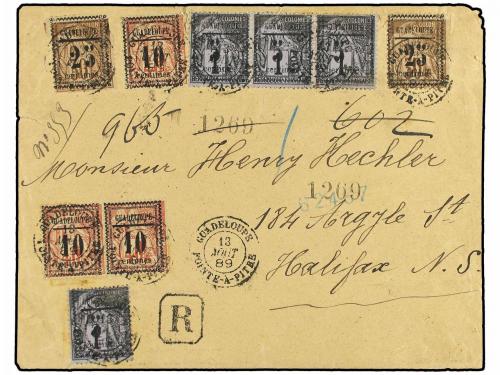 GUADELOUPE 25 centimes GUADELOUPE 10 centimes COLONIES COLONIES COLONIES GUADELOUPE 25 centimes
No 359
965 1269 602
Monsieur Henry Hechler
1269
184 Argyle St
Halifax N.S.
GUADELOUPE 10 centimes GUADELOUPE 10 centimes
GUADELOUPE 13 AOUT 89 POINTE-A-PITRE
R